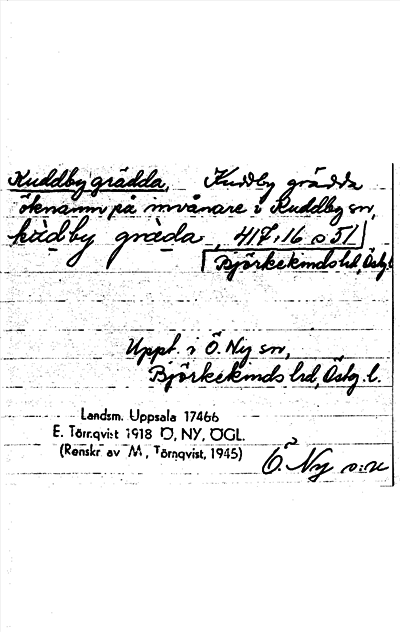 Kuddby grädda, Kuddby grädda
öknamn på invånare i Kuddby sn,
kùdby gràda, 417:16 o 51
Björkekinds hd, Östg.
Uppt. i Ö. Ny sn,
Björkekinds hd, Östg. l.
Landsm. Uppsala 17466
E. Törnqvist 1918 Ö, NY, ÖGL.
(Renskr av M, Törnqvist, 1945)
Ö. Ny s:n